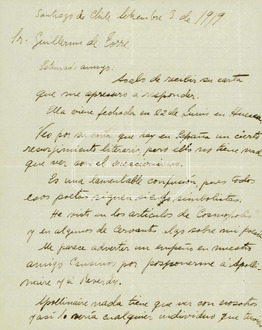 Santiago de Chile Setiembre 3 de 1919
Sr. Guillermo de Torre
Estimado amigo:
Acabo de recibir su carta
que me apresuro a responder.
Ella viene fechada en 22 de Junio en
Veo por su carta que hay en España un cierto
resurgimiento literario pero sólo nos tiene nada
que ver con el creacionismo.
Es una lamentable confusión, pues todos
esos poetas siguen siendo simbolistas.
He visto en los artículos de Cosmópolis
y en algunos de Cervantes algo sobre mi
Me parece advertir un empeño en nuestro
amigo Cansinos por posponerme a Apolli-
naire y a Reverdy.
Apollinaire nada tiene que ver con nosotros
y así lo vería cualquier individuo que